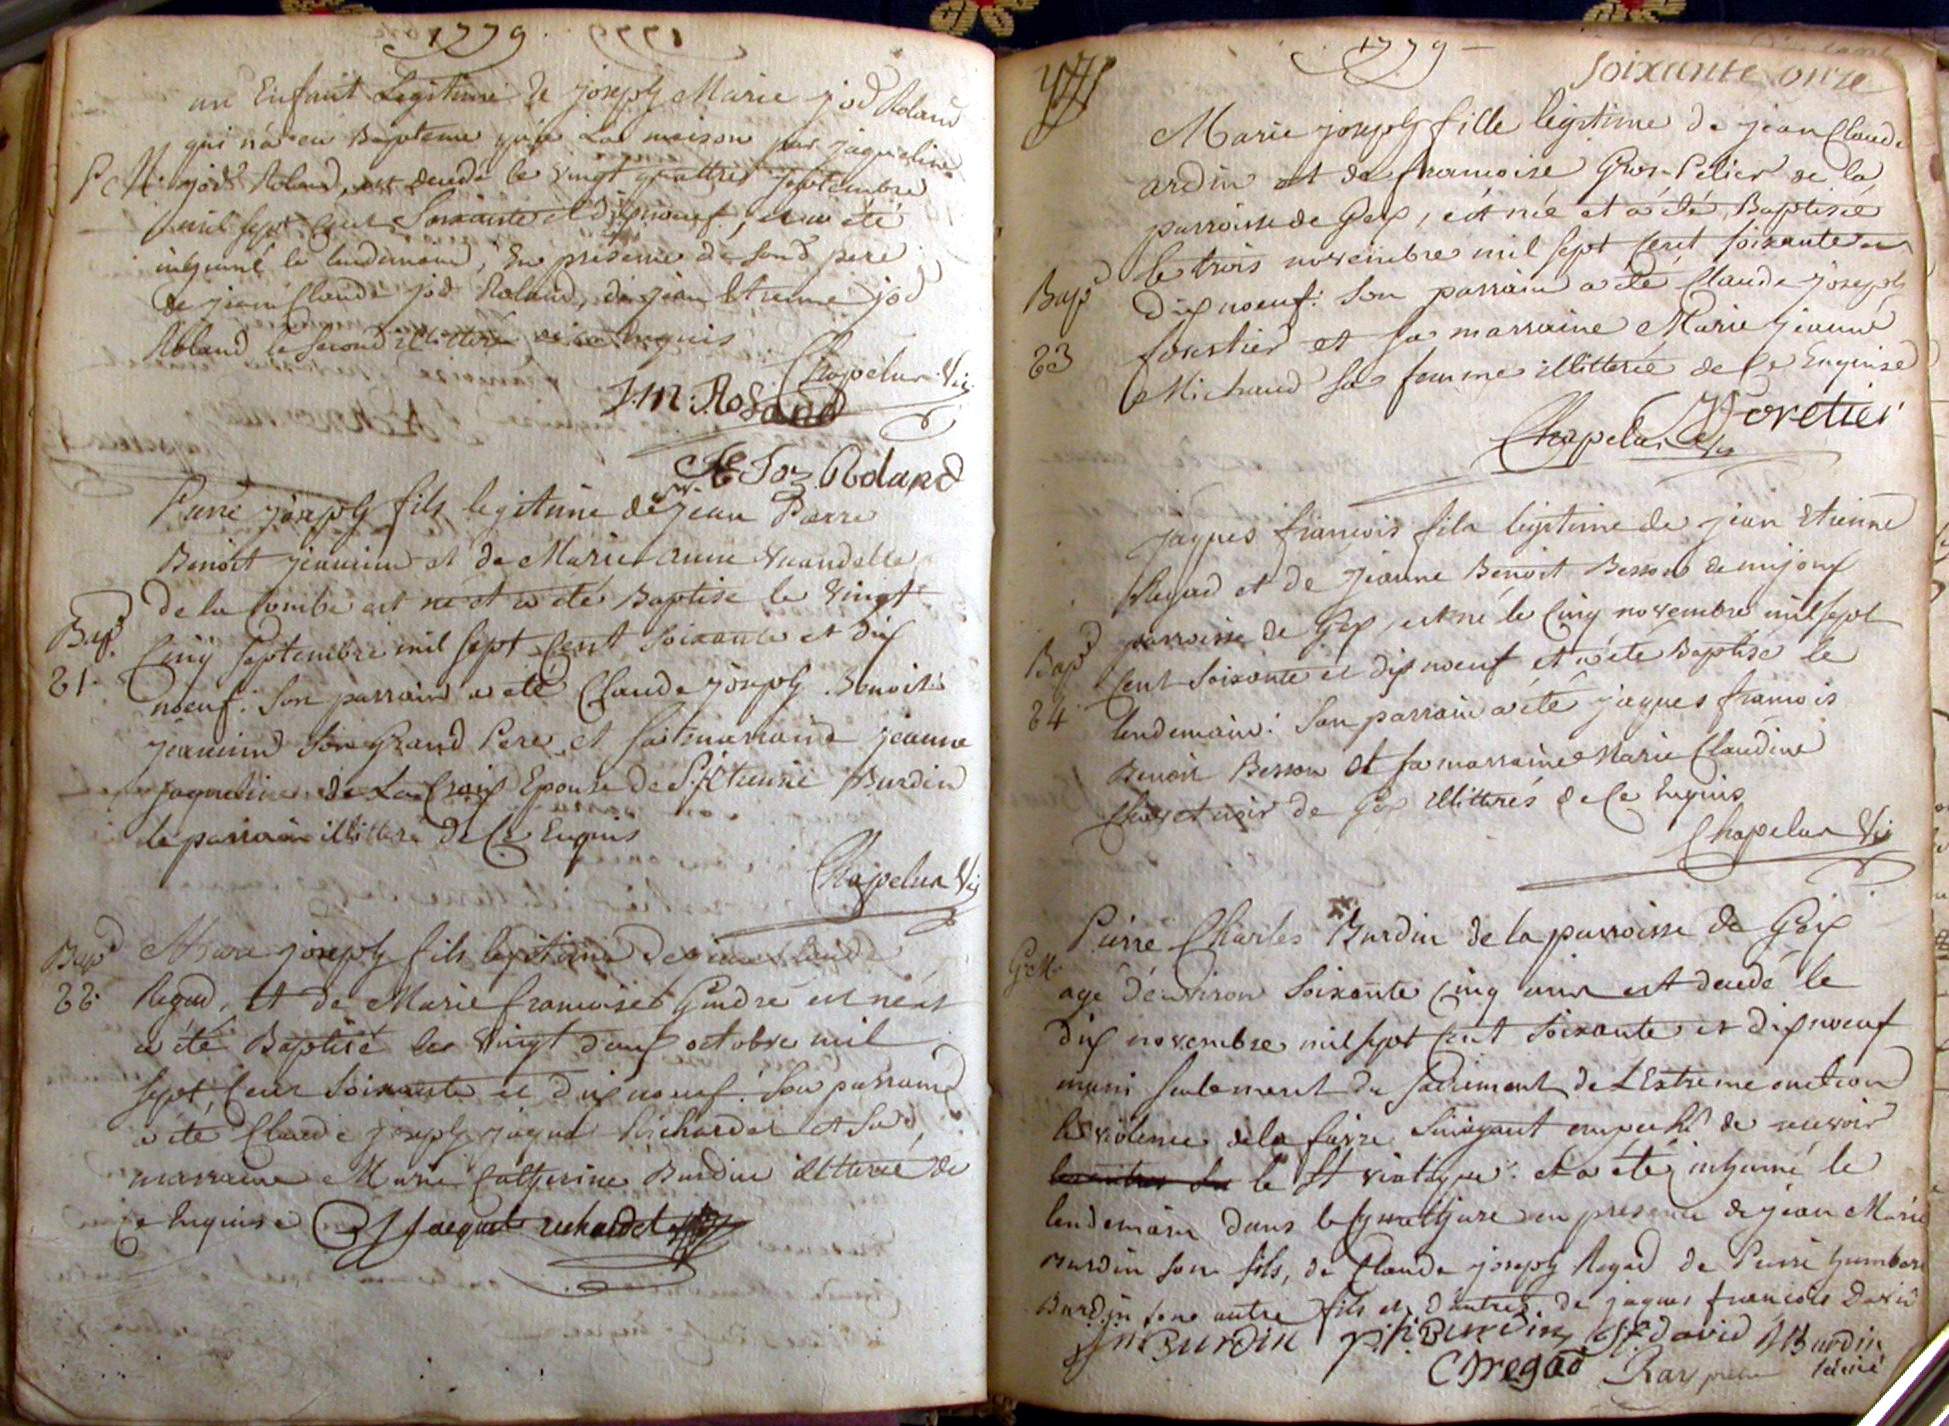 1779
un Enfant Legitime de joseph Marie jod Roland
qui n'a eu Bapteme qu'a La maison par jaqueline
P M jod Roland, est decedé le vingt quattres septembre
mil sept Cent Soixante et dixnoeuf, et a été
inhumé le lendemain, En presence de son d pere
de jean Claude jod Roland, de jean Etienne jod
Roland le second illitteré de ce Enquis
Chapelu Vic.
J.M. Roland
Joz Roland
Pierre joseph fils legitime de Sr. jean Pierre
Benoit jeannin et de Marie anne vuandelle
de la Combe est né et a été Baptisé le Vingt
Bapt
Cinq Septembre mil sept Cent Soixante et dix
21.
noeuf. Son parrain a été Claude joseph Benoit
jeannin son Grand Pere et sa marraine jeanne
jaqueline de La Croix Epouse de Sr. Etienne Burdin
le parrain illitteré de Ce Enquis
Chapelu Vic
Bapt
joseph fils legitime de jean Claude
22.
Regad, et de Marie francoise Gindre est né et
a été Baptisé le Vingt deux octobre mil
sept Cent Soixante et dix noeuf. Son parrain
a été Claude joseph jaquet Richardet et Sa
marraine Marie Catherine Burdin illitterée de
Ce Enquise Cl J Jacquet richardet
1779
Soixante onze
Marie joseph fille legitime de jean Claude
ardin et de francoise Gros-Pelier de la
parroisse de Gex, est née et a été Baptisée
le trois novembre mil sept Cent soixante et
Bapt
dix noeuf. Son parrain a été Claude joseph
23
forestier et sa marraine Marie jeanne
Michaud sa femme illitterée de Ce Enquise
Foretier
Chapelu Vic
jaques francois fils legitime de jean Etienne
Regad et de jeanne Benoit Besson de mijoux
Bapt
parroisse de Gex, est né le Cinq novembre mil sept
Cent Soixante et dix noeuf et a été Baptisé le
24
lendemain. Son parrain a été jaques francois
Benoit Besson et sa marraine Marie Claudine
de Gex illitterés de Ce Enquis
Chapelu Vic
Pierre Charles Burdin de la parroisse de Gex
G M.
agé d'environ Soixante Cinq ans est decedé le
dix novembre mil sept Cent Soixante et dix noeuf
muni seulement du Sacrement de L'Extreme onction
la violence de la fievre L'ayant empeché de recevoir
le St viatique. et a été inhumé le
lendemain dans le Cymetyere en presence de jean Marie
Burdin son fils, de Claude joseph Regad de Pierre humbert
Burdin son autre fils et d'autres. de jaques francois David
Jm Burdin P.h. Burdin J.f. david Burdin
CJregad Ray pretre